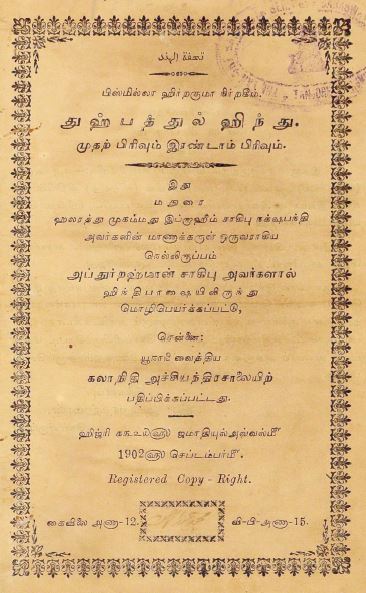 تحفة الهند
பிஸ்மில்லா ஹிர்றகுமா னிர்றகீம்.
துஹ்பத்துல் ஹிந்து.
முதற் பிரிவும் இரண்டாம் பிரிவும்.
இது
மதுரை
ஹஸரத்து முகம்மது இப்ருஹீம் சாகிபு நக்ஷபந்தி
அவர்களின் மாணுக்கருள் ஒருவராகிய
நெல்லிகுப்பம்
அப்துர்றஹ்மான் சாகிபு அவர்களால்
ஹிந்தி பாஷையிலிருந்து
மொழிபெயர்க்கப்பட்டு,
சென்னை:
யூநானிவைத்திய
கலாநிதி அச்சியந்திரசாலையிற்
பதிப்பிக்கப்பட்டது.
ஹிஜ்ரி ௧௩௨௦ ஜமாதியுல்அவ்வல்மீ
1902௵ செப்டம்பர்மீ.
Registered Copy - Right.
கைவிலை அணா-12. வி-பி-அணா-15.